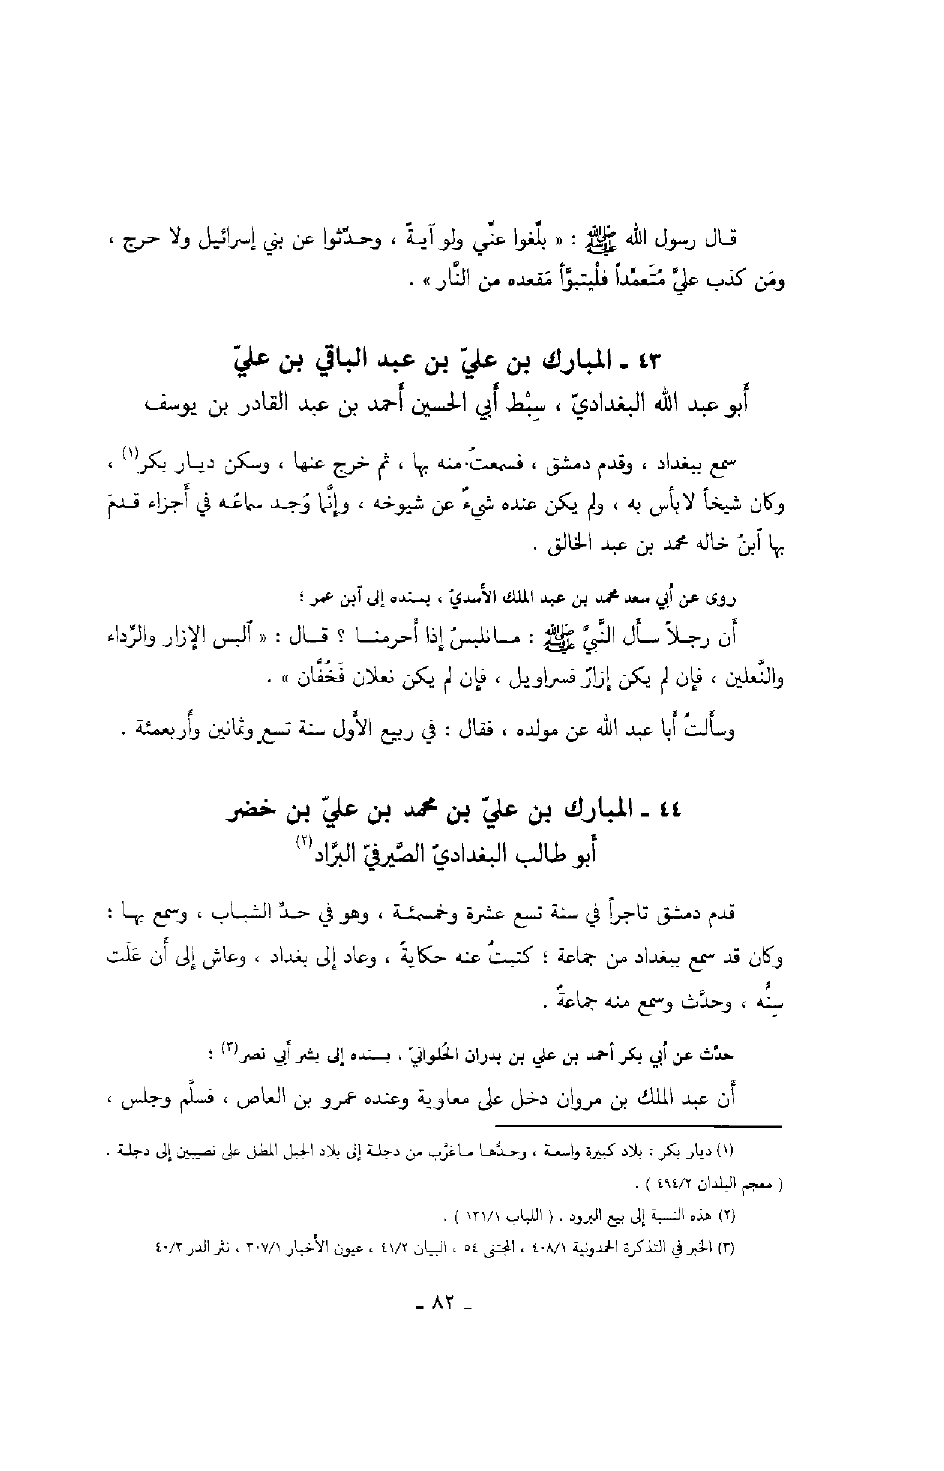 قـال رسول الله ﷺ : « بلِّغوا عنِّي ولو آيـةً ، وحـدِّثوا عن بني إسرائيل ولا حرج ،
ومَن كذب عليَّ مُتَعمِّداً فلْيتبوَّأ مَقعده من النَّار » .
٤٣ ـ المبارك بن عليّ بن عبد الباقي بن عليّ
أبو عبد الله البغداديّ ، سِبْط أبي الحسين أحمد بن عبد القادر بن يوسف
سمع ببغداد ، وقدم دمشق ، فسمعتُ منه بها ، ثم خرج عنها ، وسكن ديـار بكر(١) ،
وكان شيخاً لا بأس به ، ولم يكن عنده شيءٌ عن شيوخه ، وإنَّما وُجـد سماعُـه في أجزاء قـدمَ
بها آبنُ خاله محمد بن عبد الخالق .
روى عن أبي سعد محمد بن عبد الملك الأسديّ ، بسنده إلى آبن عمر ؛
أن رجلاً سـأل النَّبيَّ ﷺ : مـا نلبسُ إذا أحرمنـا ؟ قـال : « آلبس الإزار والرِّداء
والنَّعلين ، فإن لم يكن إزارٌ فسراويل ، فإن لم يكن نعلان فَخُفَّان » .
وسألتُ أبا عبد الله عن مولده ، فقال : في ربيع الأول سنة تسعٍ وثمانين وأربعمئة .
٤٤ ـ المبارك بن عليّ بن محمد بن عليّ بن خضر
أبو طالب البغداديّ الصَّيرفيّ البرَّاد(٢)
قدم دمشق تاجراً في سنة تسع عشرة وخمسمئـة ، وهو في حـدِّ الشبـاب ، وسمع بهـا ؛
وكان قد سمع ببغداد من جماعة ؛ كتبتُ عنه حكايةً ، وعاد إلى بغداد ، وعاش إلى أن عَلَت
سِنُّه ، وحدَّث وسمع منه جماعةٌ .
حدّث عن أبي بكر أحمد بن علي بن بدران الحُلوانيّ ، بسنده إلى بشر أبي نصر(٣) ؛
أن عبد الملك بن مروان دخل على معاوية وعنده عمرو بن العاص ، فسلَّم وجلس ،
(١) ديار بكر : بلاد كبيرة واسعـة ، وحـدُّهـا مـا غرَّب من دجلـة إلى بلاد الجبل المطل على نصيبين إلى دجلـة .
( معجم البلدان ٤٩٤/٢ ) .
(٢) هذه النسبة إلى بيع البرود . ( اللباب ١٣١/١ ) .
(٣) الخبر في التذكرة الحمدونية ٤٠٨/١ ، المجتنى ٥٤ ، البيان ٤١/٢ ، عيون الأخبار ٣٠٧/١ ، نثر الدر ٤٠/٣
ـ ٨٢ ـ